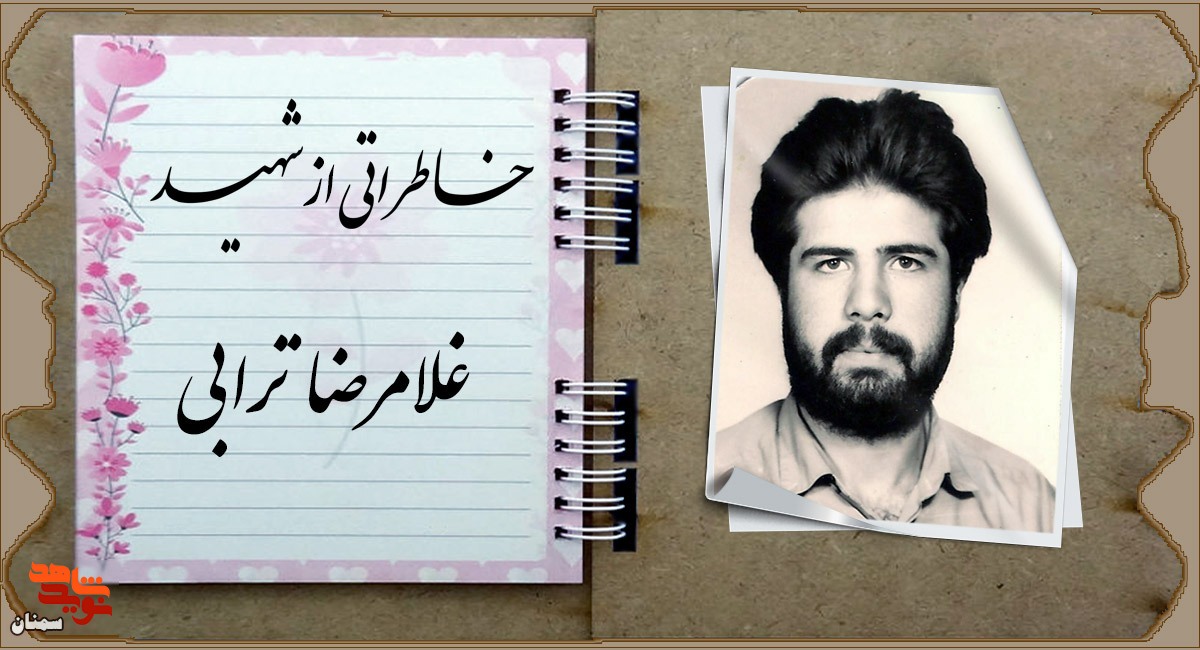 خاطراتی از شهید
غلامرضا ترابی
نوید شاهد
سمنان